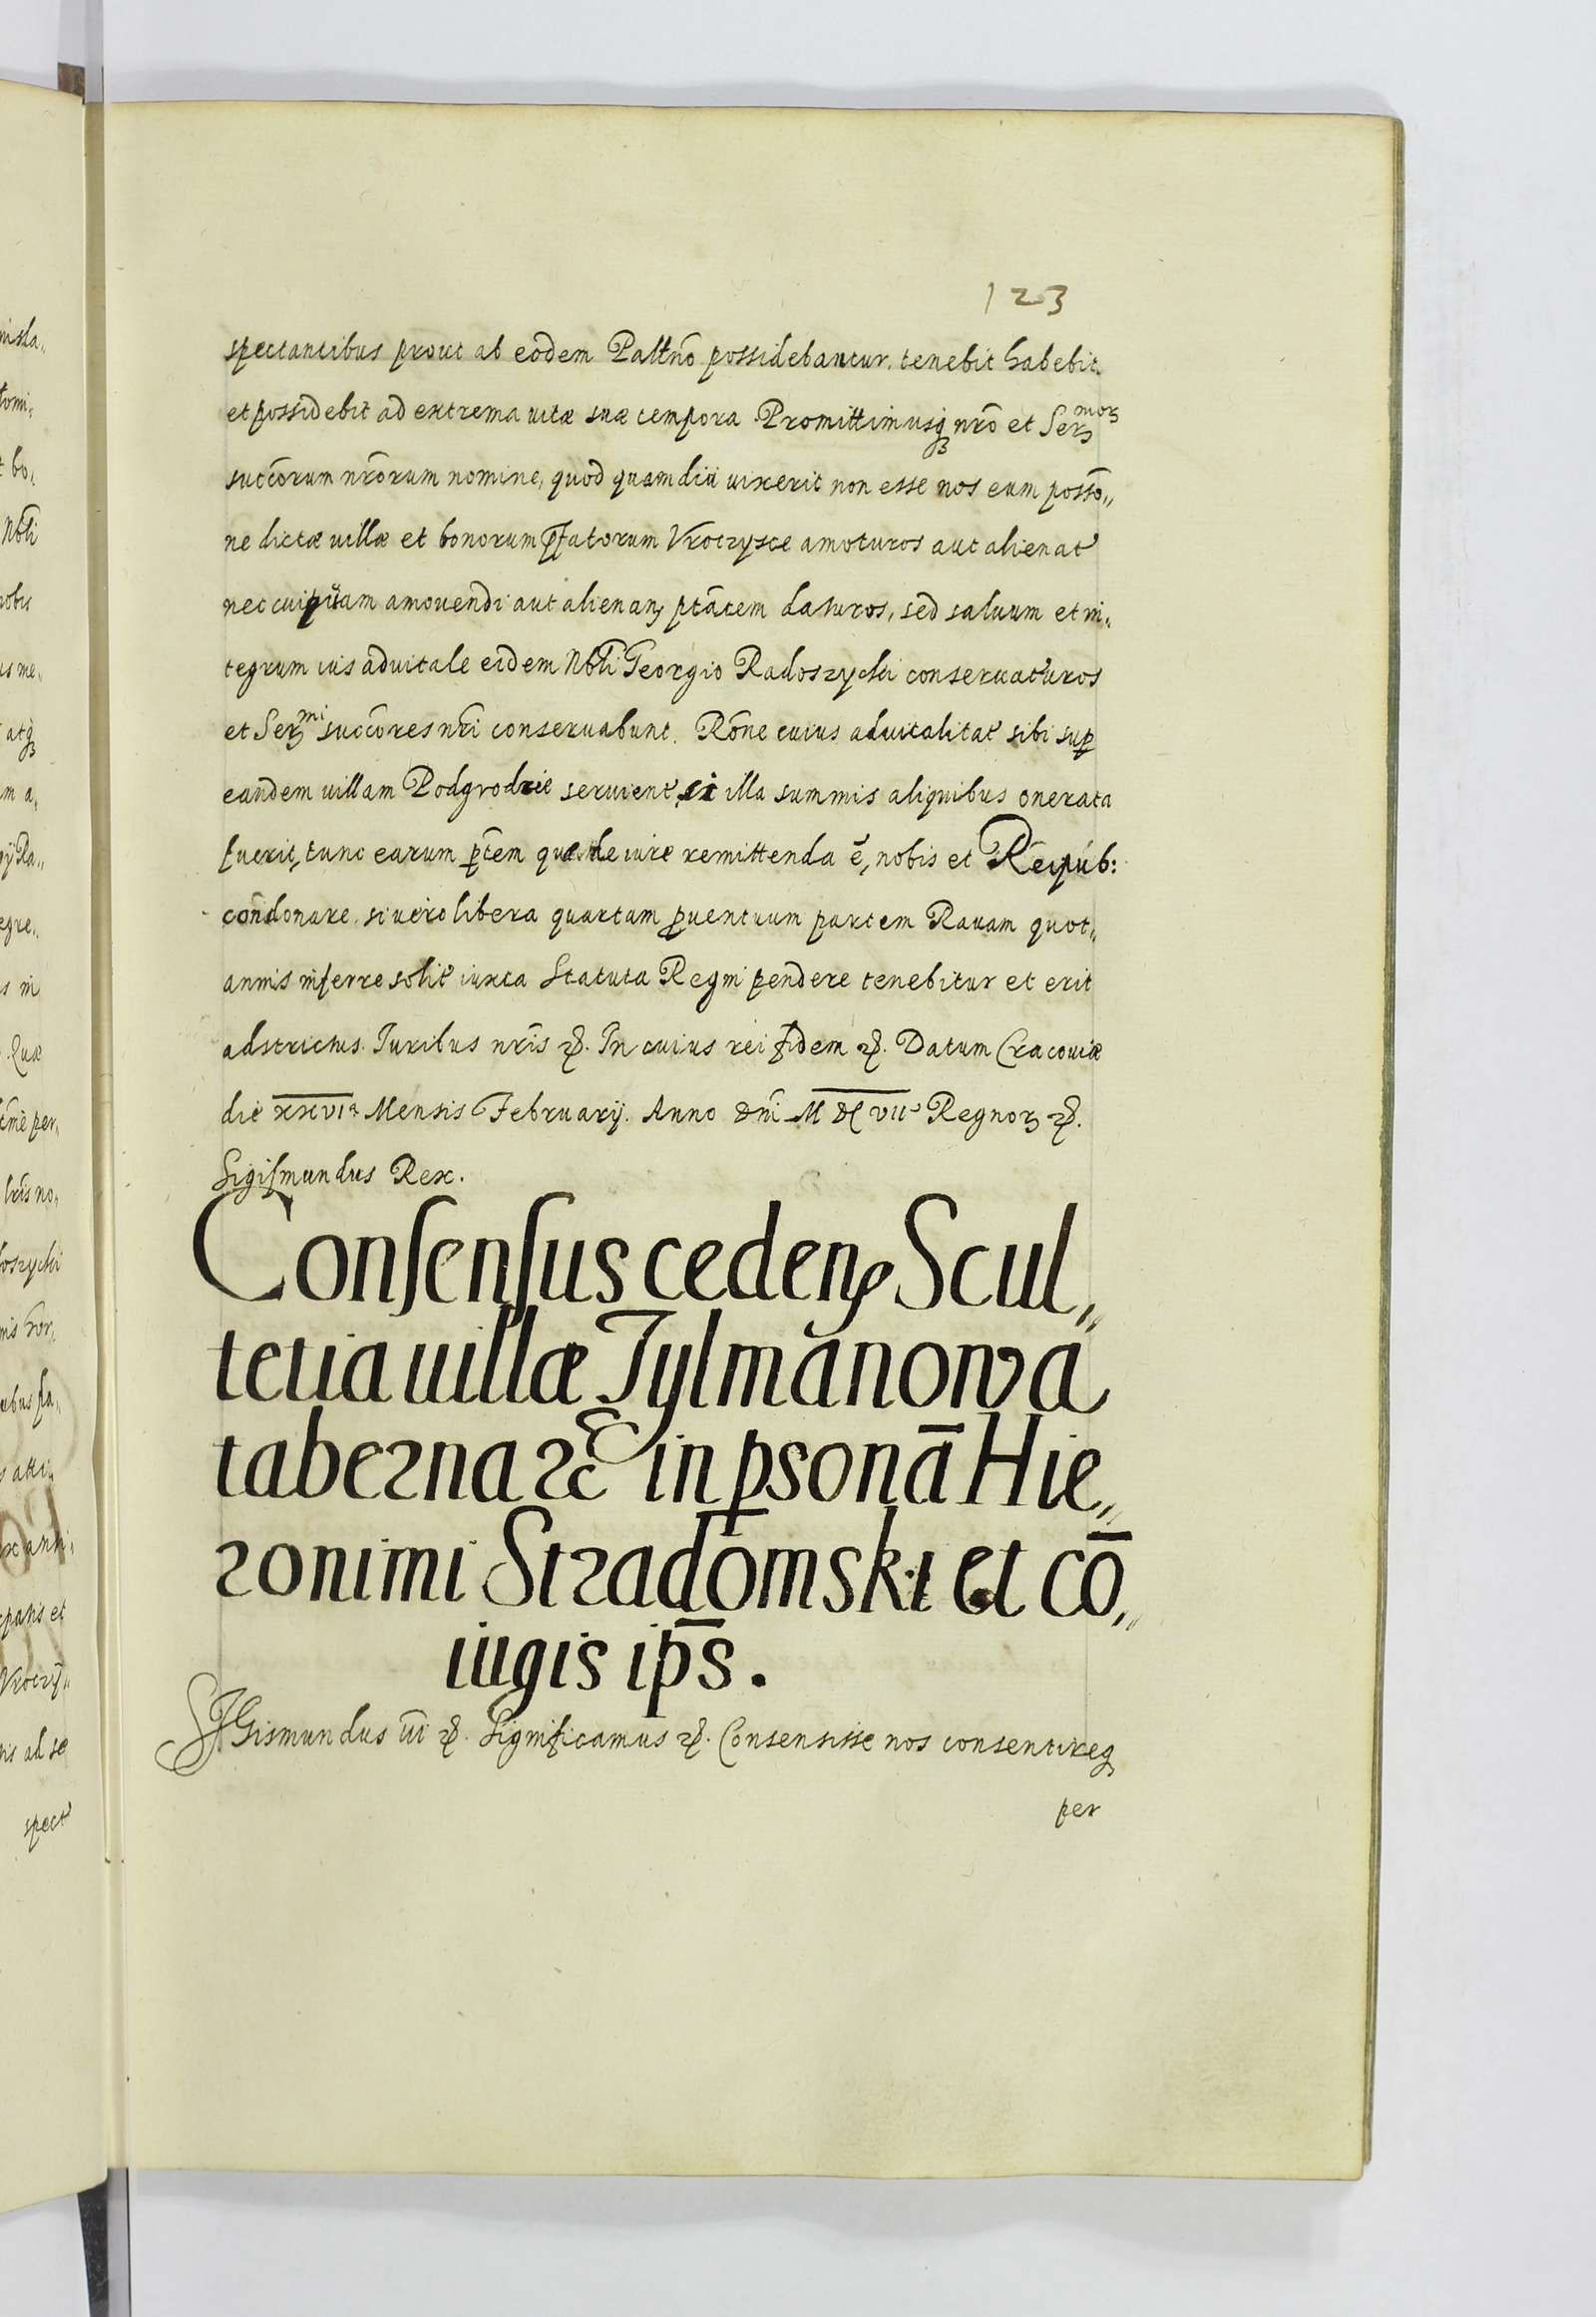 123
spectantibus prout ab eodem Paltn̄o possidebantur, tenebit habebit
et possidebit ad extrema uitæ suæ tempora. Promittimusqꝫ nr̄o et Serᵐᵒʳ
succorum nr̄orum nomine, quod quamdiu uixerit non esse nos eum possō„
ne dictæ uillæ et bonorum p̄fatorum Vroczysce amoturos aut alienat᾽
nec cuipiam amouendi aut alienan̄ ptātem daturos, sed saluum et in„
tegrum ius aduitale eidem Nbli Georgio Radoszycki conseruaturos
et Serᵐⁱ succores nr̄i conseruabunt. Rōne cuius aduitalitat᾽ sibi sup̱
eandem uillam Podgrodzie seruient᾽, si illa summis aliquibus onerata
fuerit, tunc earum ptem quæ de iure remittenda ē, nobis et Reipub:
condonare, si uero libera quartam ꝓuentuum partem Rauam quot„
annis inferre solit᾽ iuxta Statuta Regni pendere tenebitur et erit
adstrictus. Juribus nr̄is ꝛc. In cuius rei fidem ꝛc. Datum Cracouiæ
die xxvıᵃ Mensis Februarij. Anno dn̄i M DC vıı᾽ Regnoꝝ ꝛc.
Sigismundus Rex.
Consensus ceden₎ Scul„
tetia uillæ Tylmanowa
taberna ꝛc in p̱sonā Hie„
ronimi Stradomski et cō„
iugis ip̄s.
SIGismundus iii ꝛc. Significamus ꝛc. Consensisse nos consentireqꝫ
per